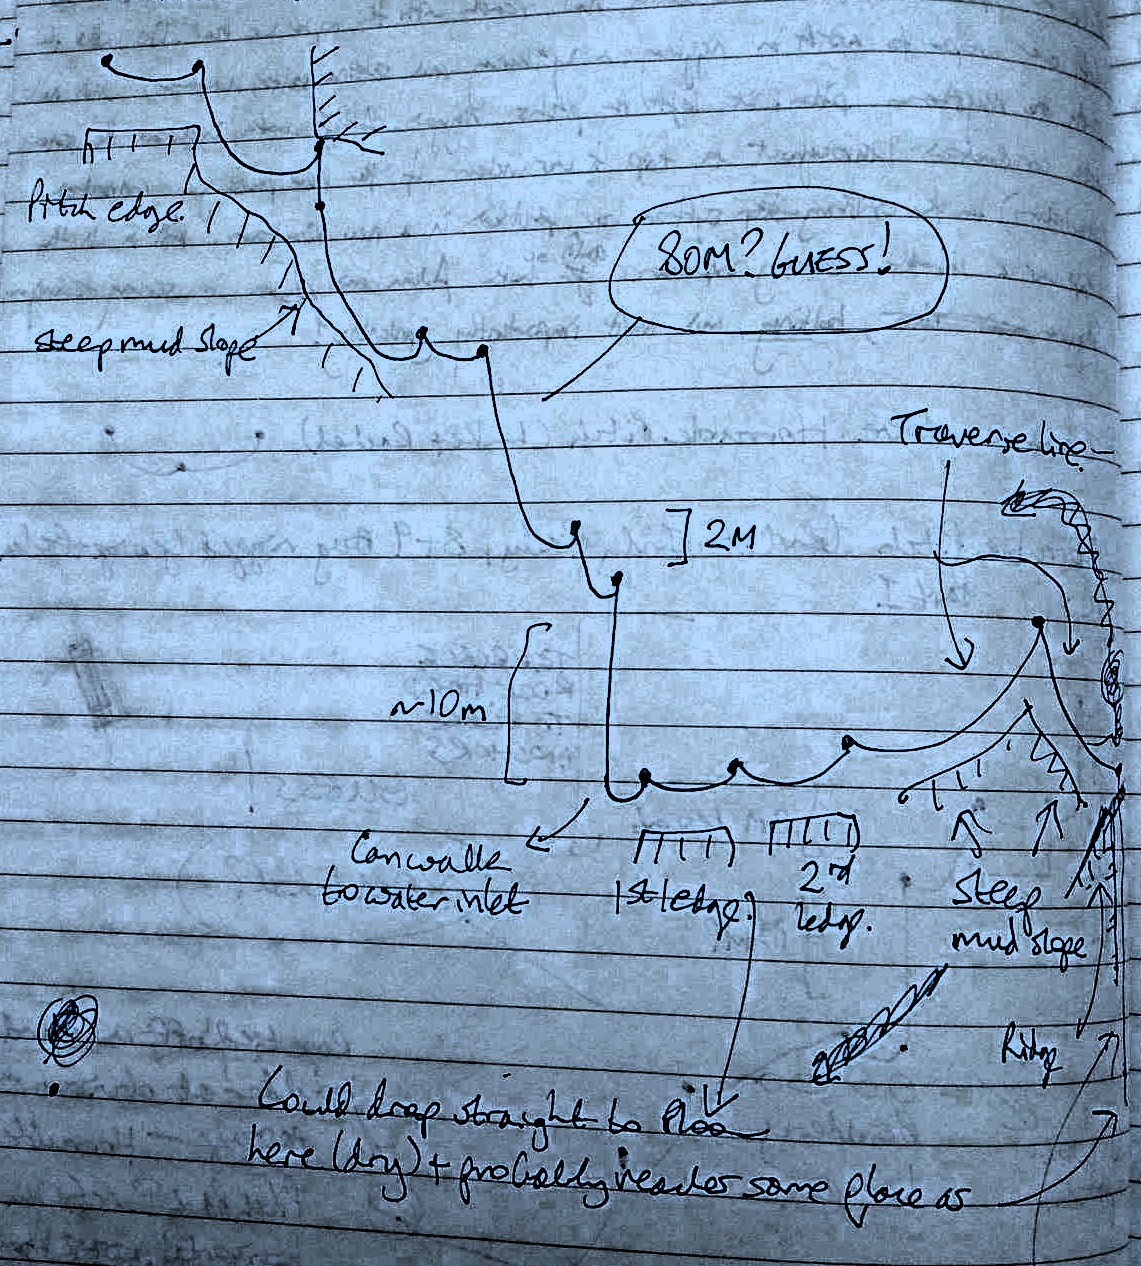 Pitch edge.
80M? GUESS!
steep mud slope
Traverse line
2M
~10m
Can walk
to water inlet
1st ledge.
2nd
ledge.
steep
mud slope
Ridge
Could drop straight to floor
here (dry) + probably reaches same place as